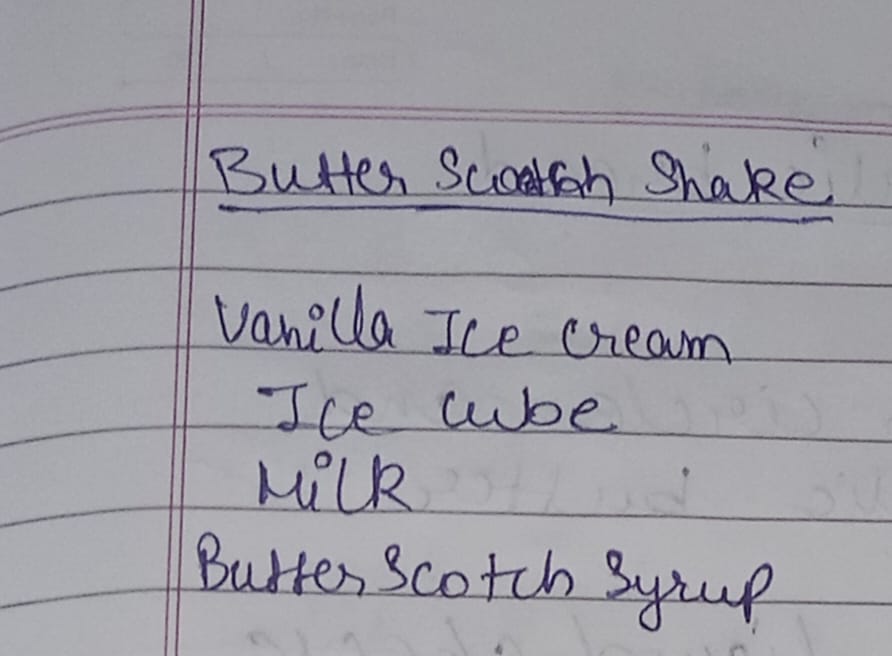 Butter Scotch Shake
Vanilla Ice cream
Ice cube
Milk
Butter Scotch Syrup